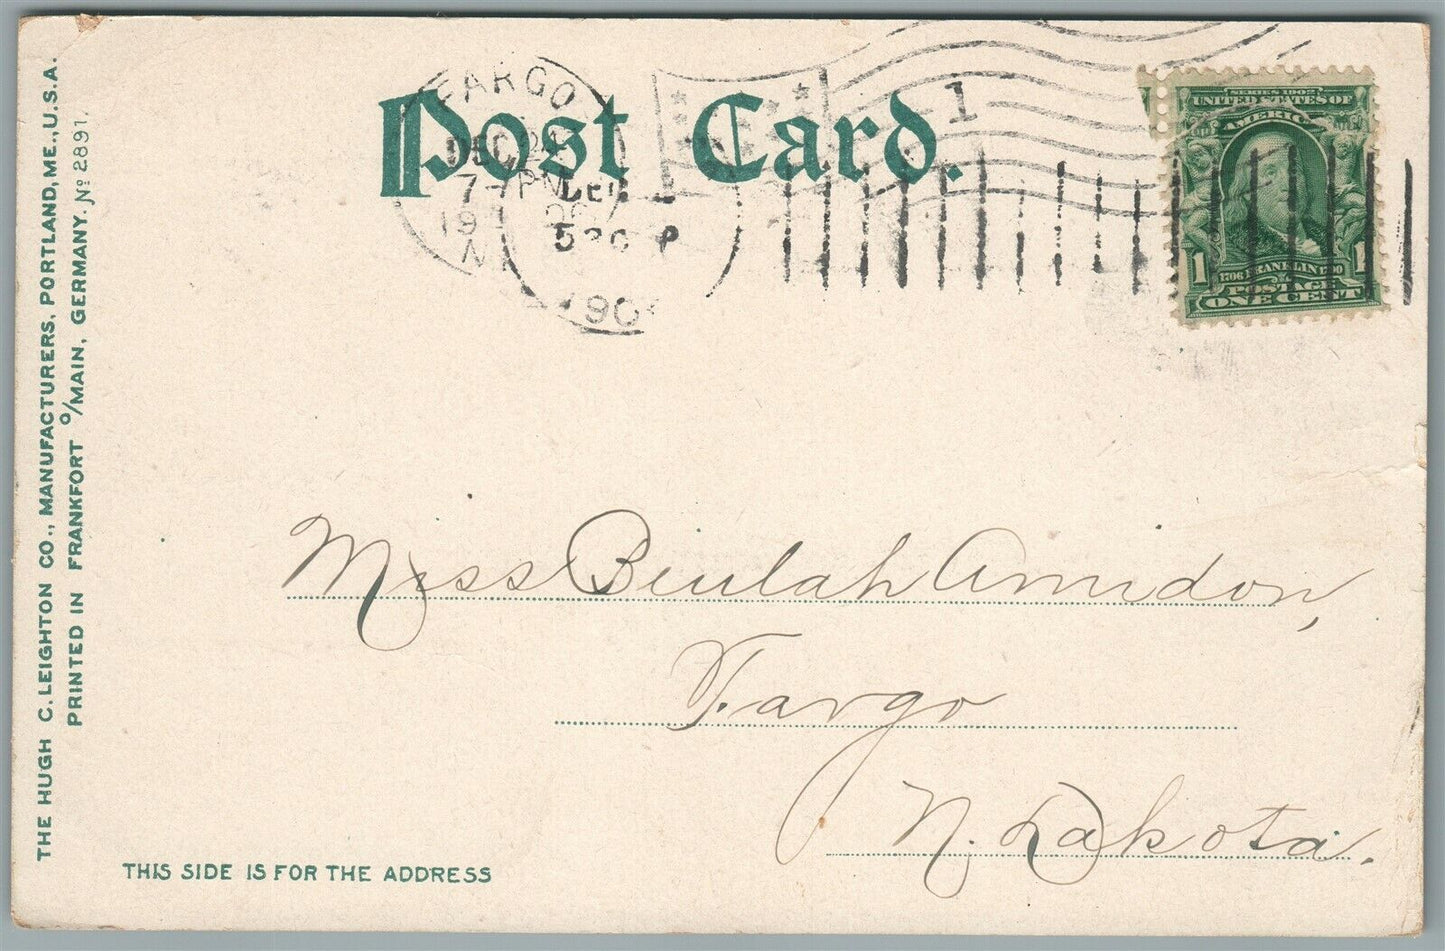 THE HUGH C. LEIGHTON CO., MANUFACTURERS, PORTLAND, ME., U.S.A.
PRINTED IN FRANKFORT o/MAIN, GERMANY. No 2891.
Post Card.
FARGO
DEC 24
7-PM
19
N
DEC
5 30 P
190
1
SERIES 1902
UNITED STATES OF
AMERICA
1 1
1706 FRANKLIN 1790
POSTAGE
ONE CENT
Miss Beulah Amidon,
Fargo
N. Dakota.
THIS SIDE IS FOR THE ADDRESS